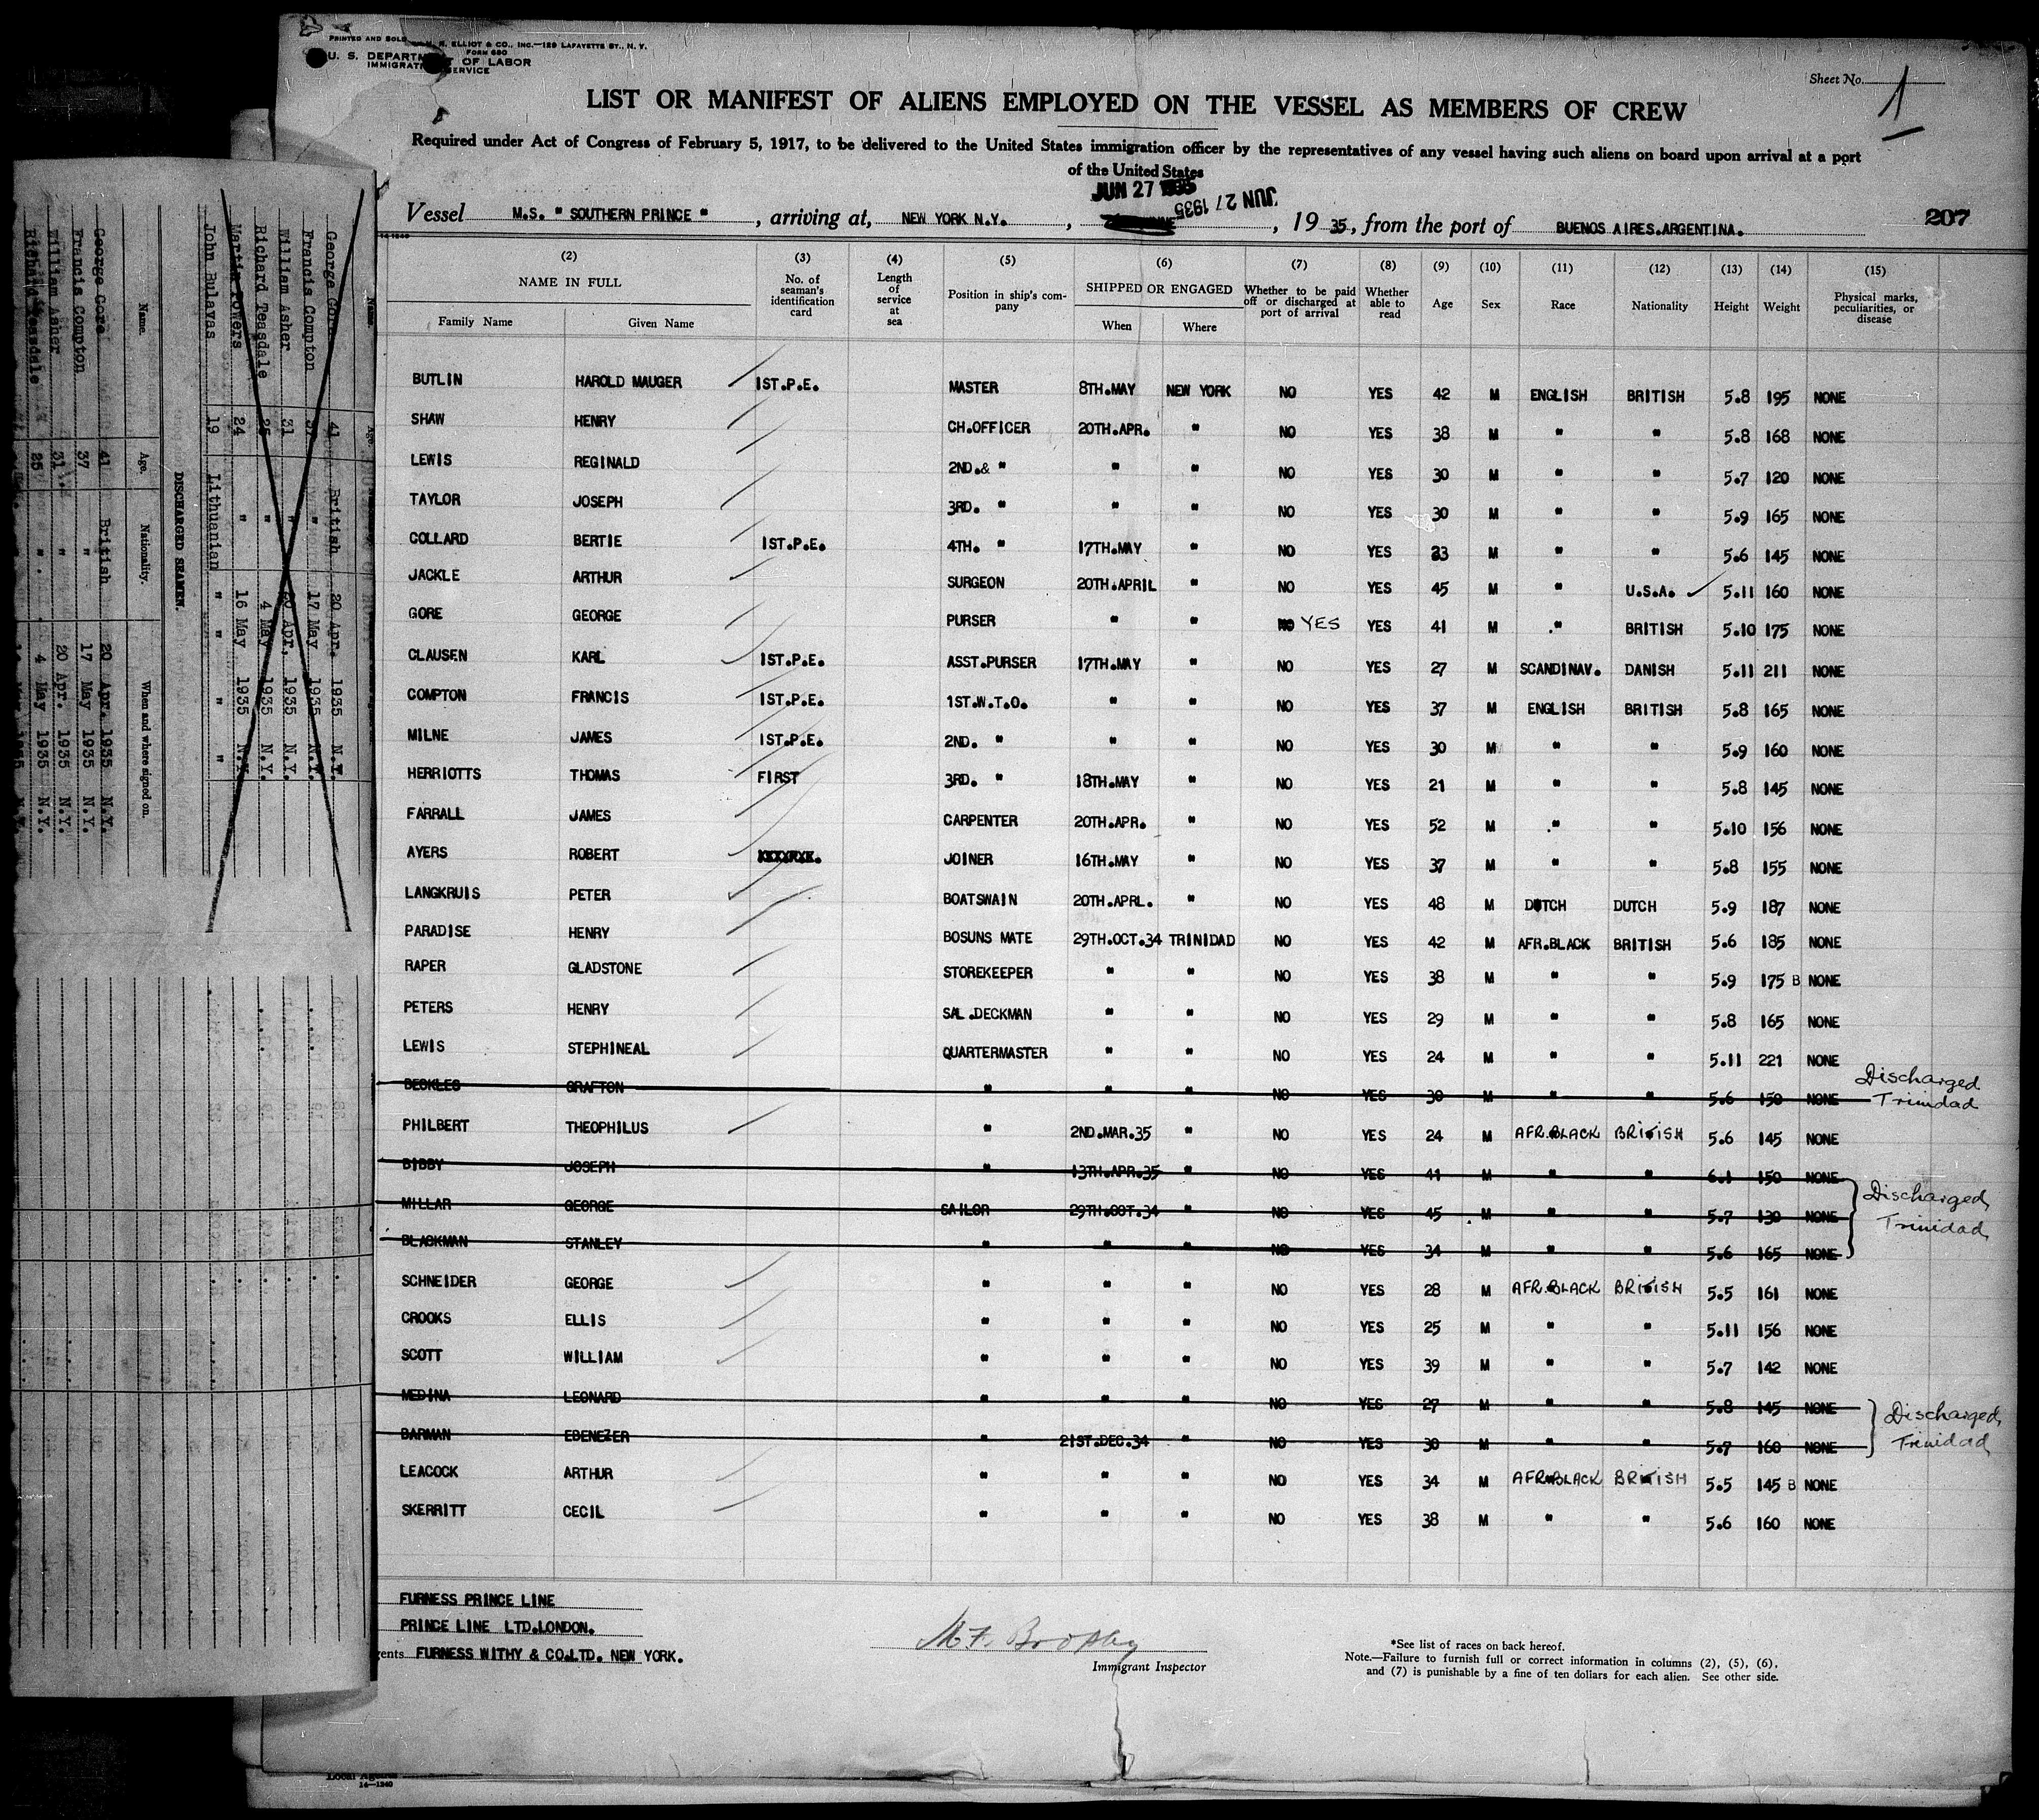 PRINTED AND SOLD ELLIOT & CO., INC.—129 LAFAYETTE ST., N. Y.
FORM 680
U. S. DEPARTMENT OF LABOR
IMMIGRATION SERVICE
Sheet No. 1
LIST OR MANIFEST OF ALIENS EMPLOYED ON THE VESSEL AS MEMBERS OF CREW
Required under Act of Congress of February 5, 1917, to be delivered to the United States immigration officer by the representatives of any vessel having such aliens on board upon arrival at a port
of the United States
JUN 27 1935
JUN 27 1935
Vessel M.S. " SOUTHERN PRINCE ", arriving at, NEW YORK N.Y. , , 19 35, from the port of BUENOS AIRES.ARGENTINA. 207
14-1240
(2) (3) (4) (5) (6) (7) (8) (9) (10) (11) (12) (13) (14) (15)
NAME IN FULL No. of seaman's identification card Length of service at sea Position in ship's company SHIPPED OR ENGAGED Whether to be paid off or discharged at port of arrival Whether able to read Age Sex Race Nationality Height Weight Physical marks, peculiarities, or disease
Family Name Given Name When Where
BUTLIN HAROLD MAUGER 1ST.P.E. MASTER 8TH.MAY NEW YORK NO YES 42 M ENGLISH BRITISH 5.8 195 NONE
SHAW HENRY CH.OFFICER 20TH.APR. " NO YES 38 M " " 5.8 168 NONE
LEWIS REGINALD 2ND.& " " " NO YES 30 M " " 5.7 120 NONE
TAYLOR JOSEPH 3RD. " " " NO YES 30 M " " 5.9 165 NONE
COLLARD BERTIE 1ST.P.E. 4TH. " 17TH.MAY " NO YES 23 M " " 5.6 145 NONE
JACKLE ARTHUR SURGEON 20TH.APRIL " NO YES 45 M " U.S.A. 5.11 160 NONE
GORE GEORGE PURSER " " NO YES YES 41 M " BRITISH 5.10 175 NONE
CLAUSEN KARL 1ST.P.E. ASST.PURSER 17TH.MAY " NO YES 27 M SCANDINAV. DANISH 5.11 211 NONE
COMPTON FRANCIS 1ST.P.E. 1ST.W.T.O. " " NO YES 37 M ENGLISH BRITISH 5.8 165 NONE
MILNE JAMES 1ST.P.E. 2ND. " " " NO YES 30 M " " 5.9 160 NONE
HERRIOTTS THOMAS FIRST 3RD. " 18TH.MAY " NO YES 21 M " " 5.8 145 NONE
FARRALL JAMES CARPENTER 20TH.APR. " NO YES 52 M " " 5.10 156 NONE
AYERS ROBERT JOINER 16TH.MAY " NO YES 37 M " " 5.8 155 NONE
LANGKRUIS PETER BOATSWAIN 20TH.APRL. " NO YES 48 M DUTCH DUTCH 5.9 187 NONE
PARADISE HENRY BOSUNS MATE 29TH.OCT.34 TRINIDAD NO YES 42 M AFR.BLACK BRITISH 5.6 185 NONE
RAPER GLADSTONE STOREKEEPER " " NO YES 38 M " " 5.9 175 B NONE
PETERS HENRY SAL.DECKMAN " " NO YES 29 M " " 5.8 165 NONE
LEWIS STEPHINEAL QUARTERMASTER " " NO YES 24 M " " 5.11 221 NONE
BECKLES GRAFTON " " " NO YES 30 M " " 5.6 150 NONE Discharged Trinidad
PHILBERT THEOPHILUS " 2ND.MAR.35 " NO YES 24 M AFR.BLACK BRITISH 5.6 145 NONE
BIBBY JOSEPH " 13TH.APR.35 " NO YES 41 M " " 6.1 150 NONE
MILLAR GEORGE SAILOR 29TH.OCT.34 " NO YES 45 M " " 5.7 130 NONE Discharged Trinidad
BLACKMAN STANLEY " " " NO YES 34 M " " 5.6 165 NONE
SCHNEIDER GEORGE " " " NO YES 28 M AFR.BLACK BRITISH 5.5 161 NONE
CROOKS ELLIS " " " NO YES 25 M " " 5.11 156 NONE
SCOTT WILLIAM " " " NO YES 39 M " " 5.7 142 NONE
MEDINA LEONARD " " " NO YES 27 M " " 5.8 145 NONE Discharged
BARMAN EBENEZER " 21ST.DEC.34 " NO YES 30 M " " 5.7 160 NONE Trinidad
LEACOCK ARTHUR " " " NO YES 34 M AFR.BLACK BRITISH 5.5 145 B NONE
SKERRITT CECIL " " " NO YES 38 M " " 5.6 160 NONE
FURNESS PRINCE LINE
PRINCE LINE LTD.LONDON.
gents FURNESS WITHY & CO.LTD. NEW YORK.
M F. Brophy
Immigrant Inspector
*See list of races on back hereof.
Note.—Failure to furnish full or correct information in columns (2), (5), (6),
and (7) is punishable by a fine of ten dollars for each alien. See other side.
Local Agents
14—1240
Name. Age.
George Gore 41 British 20 Apr. 1935 N.Y.
Francis Compton 37 " 17 May 1935 N.Y.
William Asher 31 " 20 Apr. 1935 N.Y.
Richard Teasdale 25 " 4 May 1935 N.Y.
Martin Powers 24 " 16 May 1935 N.Y.
John Bulavas 19 Lithuanian " " " "
DISCHARGED SEAMEN.
Name. Age. Nationality. When and where signed on.
George Gore 41 British 20 Apr. 1935 N.Y.
Francis Compton 37 " 17 May 1935 N.Y.
William Asher 31 " 20 Apr. 1935 N.Y.
Richard Teasdale 25 " 4 May 1935 N.Y.